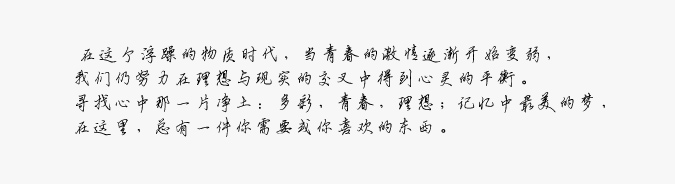 在这个浮躁的物质时代，当青春的激情逐渐开始变弱，
我们仍努力在理想与现实的交叉中得到心灵的平衡。
寻找心中那一片净土：多彩，青春，理想；记忆中最美的梦，
在这里，总有一件你需要或你喜欢的东西。